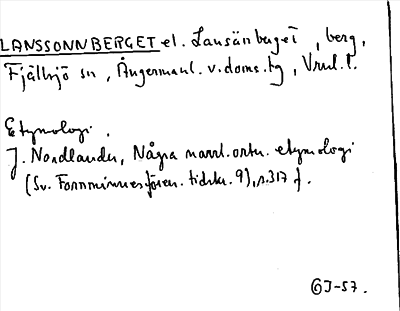 LANSSONNBERGET el. Lansänberget, berg,
Fjällsjö sn, Ångermanl. v. doms. tg,
Etymologi.
J. Nordlander, Några norrl. ortn. etymologi
(Sv. Fornminnesfören. tidskr. 9), s. 317 f.
J-57.